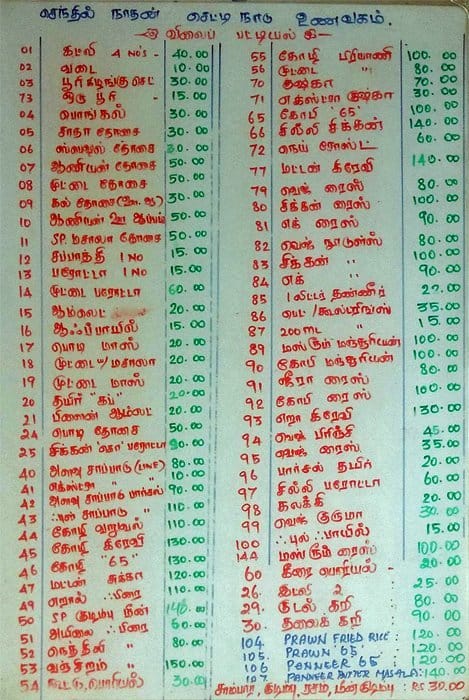 செந்தில் நாதன் செட்டி நாடு உணவகம்.
விலைப் பட்டியல்
01 இட்லி 4 NO's 40.00
02 வடை 10.00
03 பூரி கிழங்கு செட் 30.00
73 ஒரு பூரி 15.00
04 பொங்கல் 30.00
05 சாதா தோசை 30.00
06 ஸ்பெஷல் தோசை 30.00
07 ஆனியன் தோசை 50.00
08 முட்டை தோசை 50.00
09 கல் தோசை 30.00
10 ஆனியன் ஊத்தாப்பம் 50.00
11 SP. மசாலா தோசை 50.00
12 சப்பாத்தி 1 NO 15.00
13 பரோட்டா 1 NO 15.00
14 முட்டை பரோட்டா 60.00
15 ஆம்லெட் 20.00
16 ஆஃப்பாயில் 15.00
17 பொடி மாஸ் 20.00
18 முட்டை "/மசாலா 20.00
19 முட்டை மாஸ் 20.00
20 தயிர் "கப்" 20.00
21 பிளைன் ஆம்லட் 20.00
24 பொடி தோசை 50.00
25 சிக்கன் பரோட்டா 90.00
40 அளவு சாப்பாடு 80.00
41 எக்ஸ்ட்ரா " 10.00
42 அளவு சாப்பாடு பார்சல் 90.00
43 புல் சாப்பாடு " 110.00
44 கோழி வறுவல் 110.00
45 கோழி கிரேவி 130.00
46 கோழி "65" 130.00
47 மட்டன் சுக்கா 120.00
49 எறால் பிரை 110.00
50 SP குடிம்பு மீன் 140.00
51 அயிலை பிரை 60.00
52 நெத்திலி " 80.00
53 வஞ்சிரம் " 150.00
54 கூட்டு, பொரியல் 30.00
55 கோழி பிரியாணி 100.00
56 முட்டை " 80.00
70 குஷ்கா 70.00
71 எக்ஸ்ட்ரா குஷ்கா 30.00
65 கோபி 65' 100.00
66 சில்லி சிக்கன் 140.00
72 நெய் ரோஸ்ட் 60.00
77 மட்டன் கிரேவி 140.00
79 வெஜ் ரைஸ் 80.00
80 சிக்கன் ரைஸ் 100.00
81 எக் ரைஸ் 90.00
82 வெஜ் நூடுல்ஸ் 80.00
83 சிக்கன் " 100.00
84 எக் " 90.00
85 1 லிட்டர் தண்ணீர் 20.00
86 பெட் /கூல்டிரிங்ஸ் 35.00
87 200ml " 15.00
89 மஸ்ரூம் மஞ்சூரியன் 100.00
90 கோபி மஞ்சூரியன் 100.00
91 ஜீரா ரைஸ் 80.00
92 கோபி ரைஸ் 100.00
93 எறா கிரேவி 130.00
94 வெஜ் பிரிஞ்சி 45.00
95 வெஜ் ரைஸ் 35.00
96 பார்சல் தயிர் 20.00
97 சில்லி பரோட்டா 60.00
98 கலக்கி 20.00
99 வெஜ் குருமா 30.00
100 புல் பாயில் 15.00
144 மஸ்ரூம் ரைஸ் 100.00
60 கீரை பொரியல் 20.00
26. இட்லி 2 25.00
29. குடல் கறி 80.00
30. தலைக் கறி 90.00
104. PRAWN FRIED RICE: 120.00
105. PRAWN 65: 120.00
106 PANNEER 65 120.00
107 PANNEER BUTTER MASALA: 140.00
சாம்பார், குடிம்பு, ரசம், மீன் குடிம்பு RS 30.00